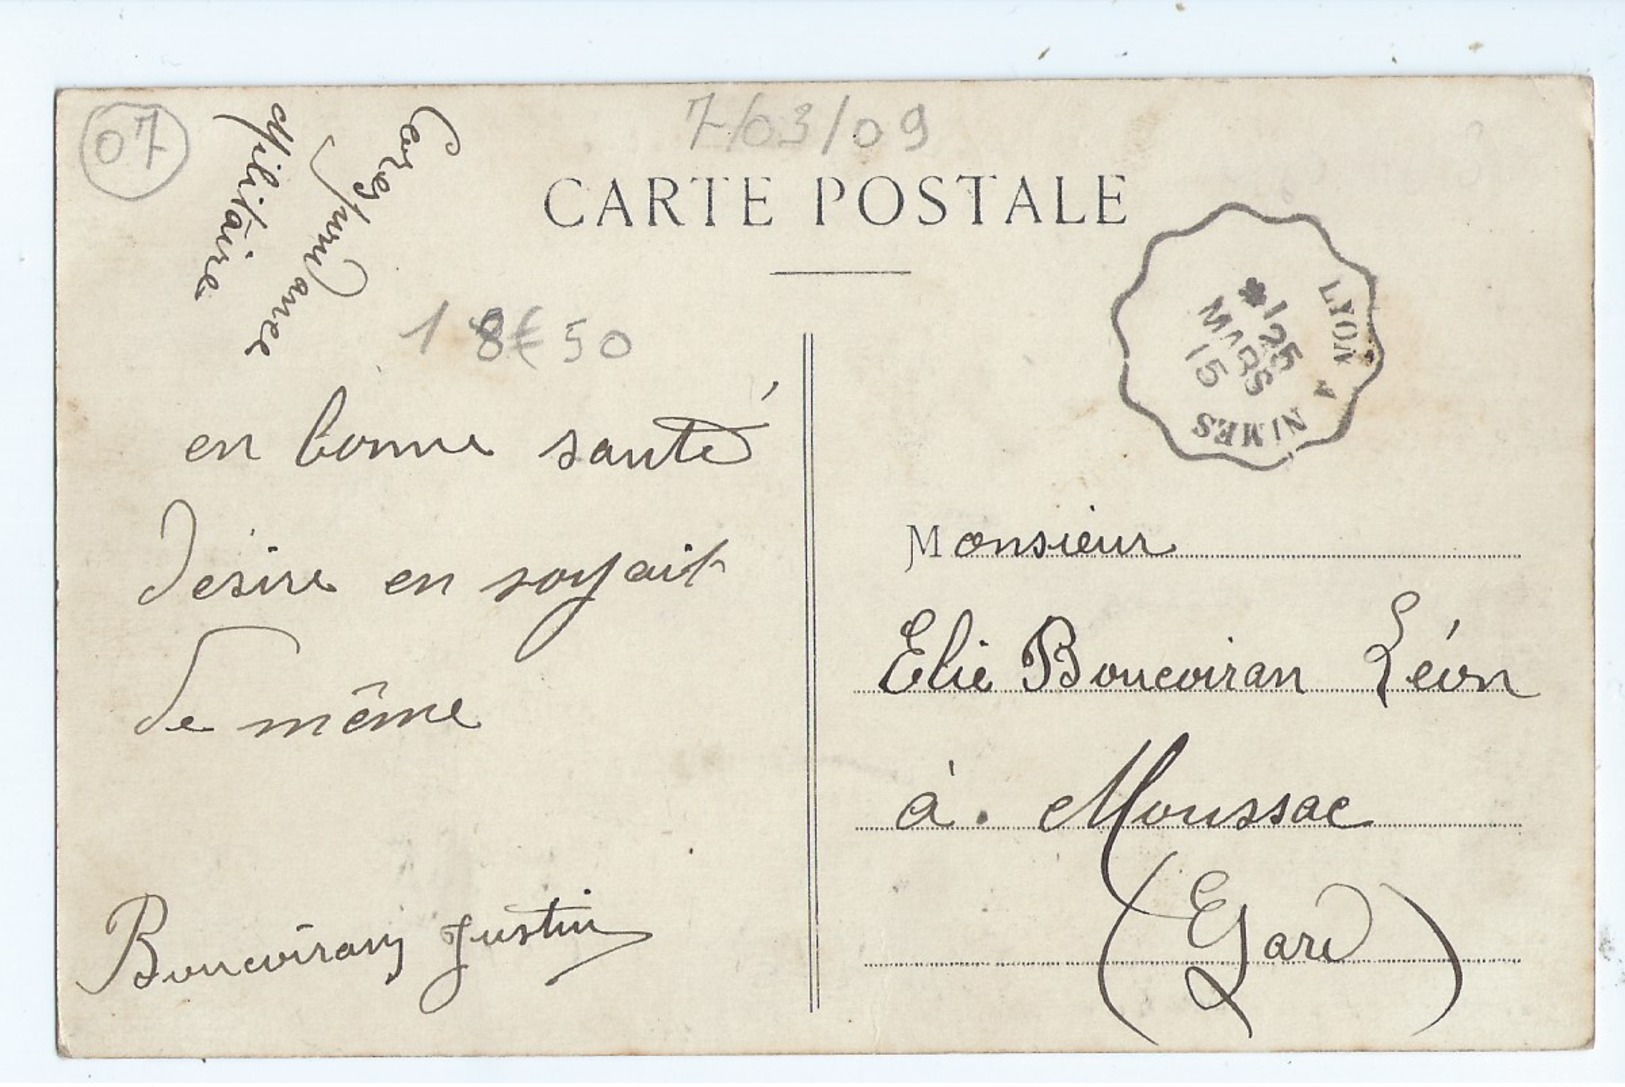 07
7/03/09
Corespondance
Militaire
CARTE POSTALE
18€50
LYON A NIMES
*1 25
MARS
15
en bonne santé
desire en soyait
de même
Boucoiran Justin
Monsieur
Elie Boucoiran Léon
à. Moussac
(Gard)